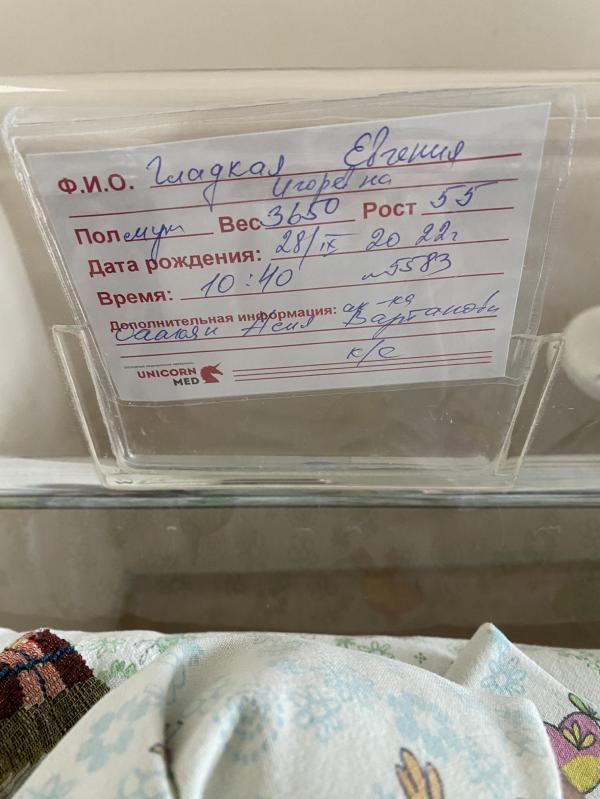 Ф.И.О. Гладкая Евгения
Игоревна
Пол муж Вес 3650 Рост 55
Дата рождения: 28/IX 20 22г
Время: 10:40 №5583
Дополнительная информация: ак-ка
Саакян Асия Вартановн
к/с
UNICORN
MED